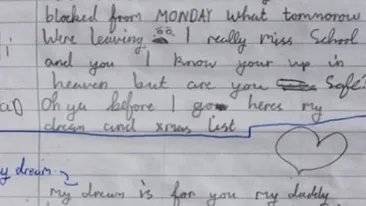 blocked from MONDAY what tommorow
i Were leaving I really miss School
and you I know your up in
heaven but are you Safe?
Oh ya before I go heres my
dream and xmas list
y dream
my dream is for you my daddy